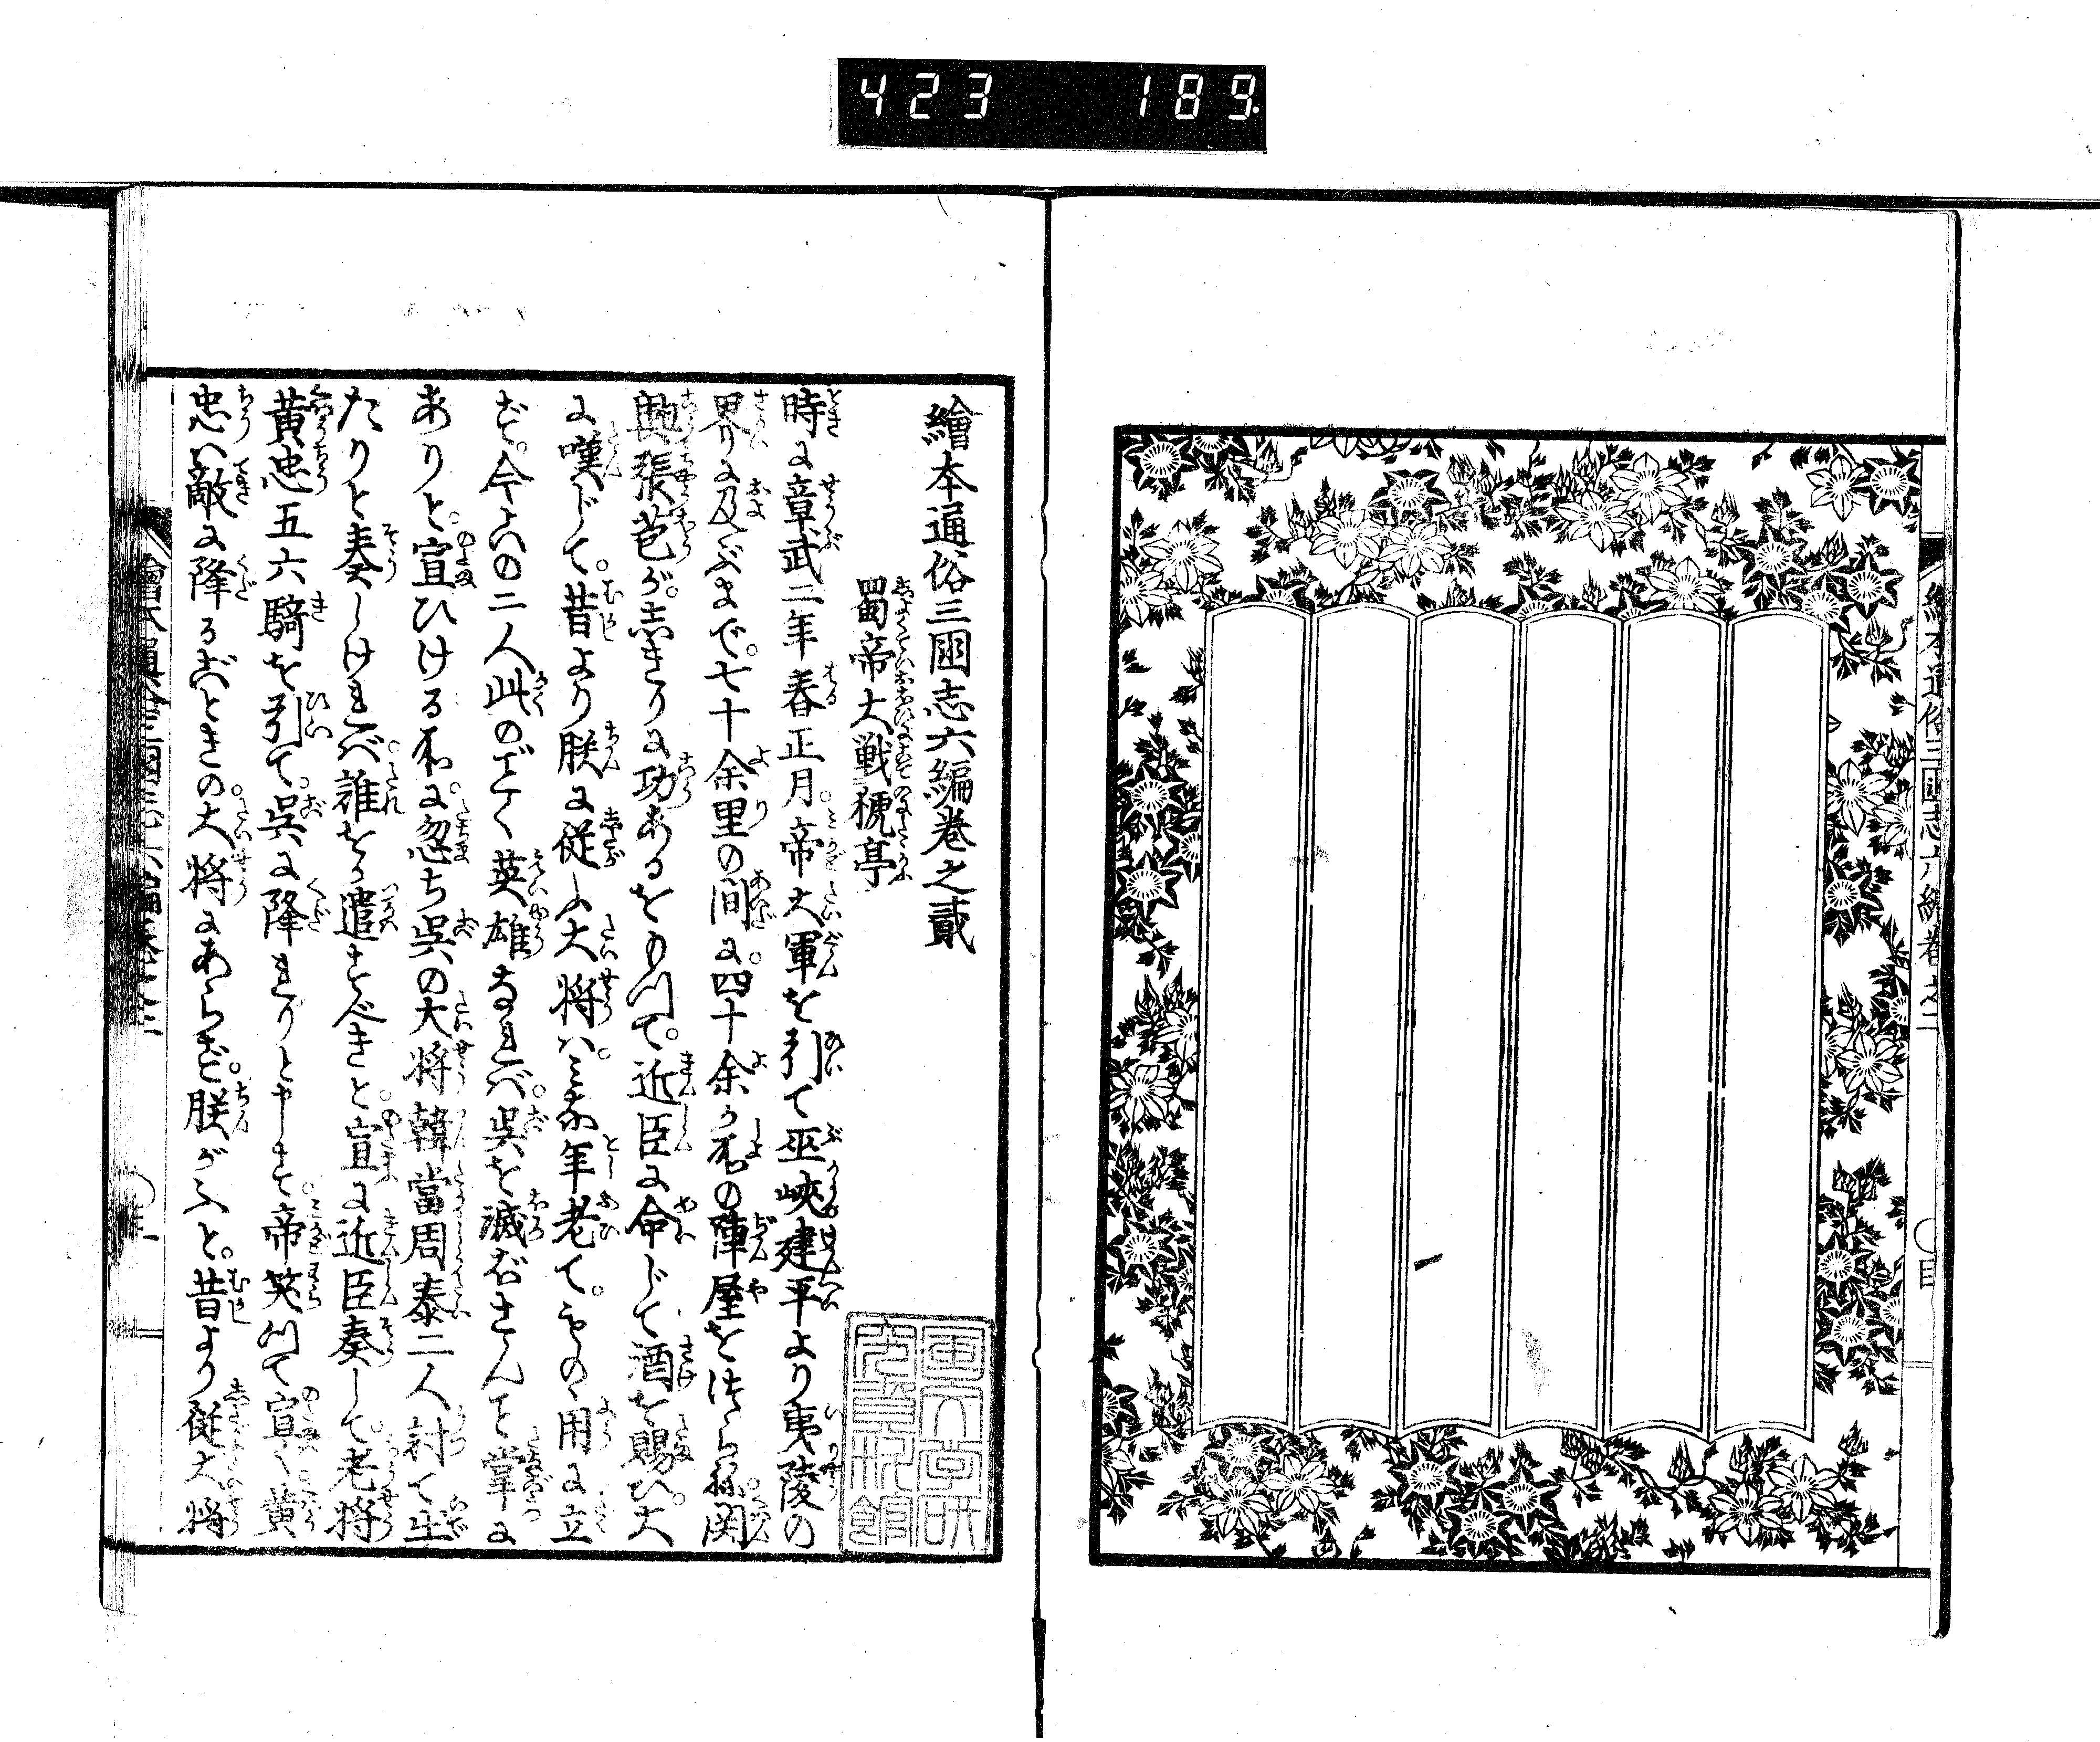 423 189
繪本通俗三國志六編巻之二
目
繪本通俗三國志六編巻之貳
蜀帝大戦猇亭
時に章武二年春正月。帝大軍を引て巫峡建平より夷陵の
界に及ぶまで。七十余里の間に。四十余ヶ所の陣屋をつらね。関
興張苞が。志きりに功あるをもつて。近臣に命じて酒を賜ひ。大
に嘆じて。昔より朕に従ふ大将ハ。ミな年老て。ものゝ用に立
ず。今この二人此のごとく英雄なれバ。呉を滅ぼさんこと掌に
ありと。宣ひける所に。忽ち呉の大将韓當周泰二人討て出
たりと奏しけれバ。誰をか遣すべきと。宣に近臣奏して。老将
黄忠五六騎を引て。呉に降れりと申す。帝笑つて宣く。黄
忠ハ敵に降るべきの。大将にあらず。朕がふと。昔より従大将
繪本通俗三國志六編巻之二
國文学研
究資料館